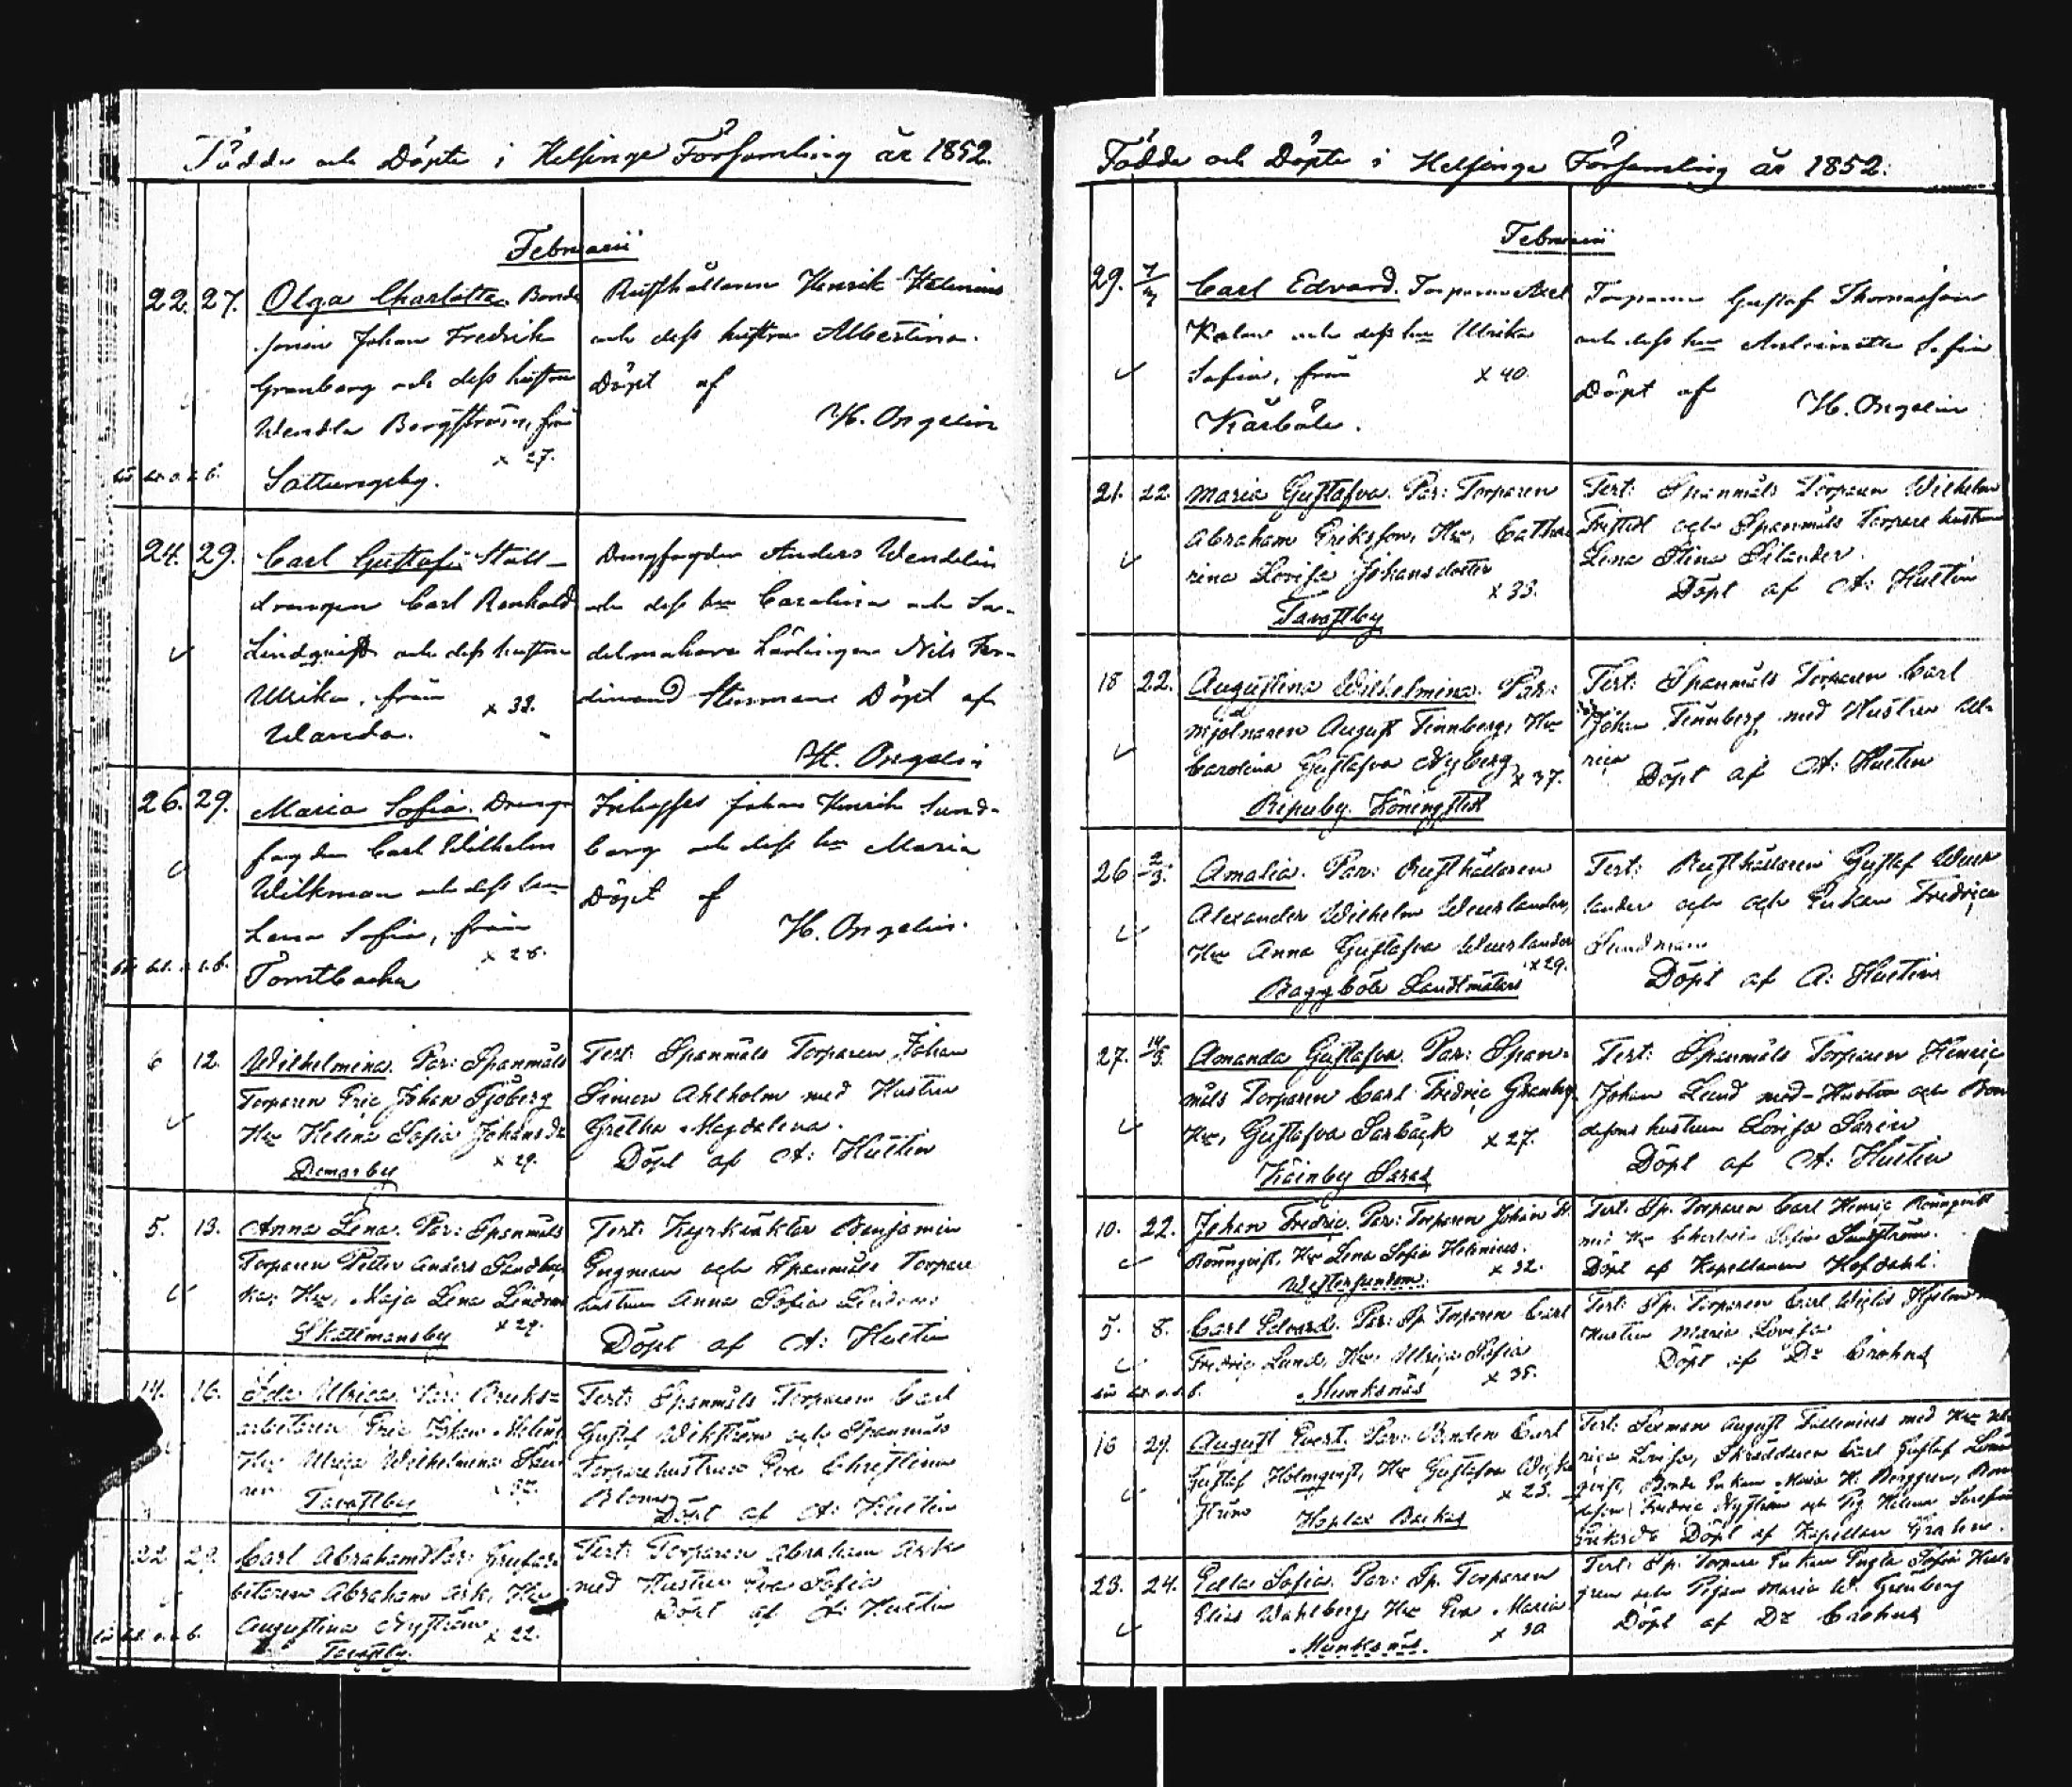 Födde och Döpte i Helsinge Församling år 1852.
Februarii
22. 27. Olga Charlotta. Bonde
sonen Johan Fredrik
Granberg och dess hustru
Wendla Bergström, från
x 27.
Sottungsby.
Rusthållaren Henrik Helenius
och dess hustru Albertina.
Döpt af
H. Ongelin
24. 29. Carl Gustaf. Stall-
drengen Carl Renhold
Lindqvist och dess hustru
Ulrika, från x 32.
Wanda.
Drengfogden Anders Wendelin
och dess hu Carolina och Sa-
delmakare Lärlingen Nils Fer-
dinand Stenman Döpt af
H. Ongelin
26. 29. Maria Sofia. Dreng
fogden Carl Wilhelm
Wikman och dess hu
Lena Sofia, från
x 28.
Tomtbacka
Johan Henrik Sund-
berg och dess hu Maria
Döpt af
H. Ongelin.
6 12. Wilhelmina. Par: Spanmåls
Torparen Eric Johan Sjöberg
Hu Helena Sofia Johansdr
x 29.
Domarby
Tert: Spanmåls Torparen Johan
Simon Ahlholm med Hustru
Gretha Magdalena.
Döpt af A: Hustin
5. 13. Anna Lena. Par: Spanmåls
Torparen Petter Anders
Hu, Maja Lena
Skattmansby x 29.
Tert: Kyrkväktar Benjamin
Engman och Spanmåls Torpare
hustrun Anna Sofia
Döpt af A: Hustin
14. 16. Ida Ulrica. Par: Bruks=
arbetaren Eric Johan
Hu Ulrica Wilhelmina
Tavastby
Tert: Spanmåls Torparen Carl
Gustaf Wikström och Spanmåls
Torparehustrun Eva Christina
Blom
Döpt af A: Hustin
22 29. Carl Abraham Par: Grufar-
betaren Abraham Ask, Hu
Augustina Nyström x 22.
Tavastby
Tert: Torparen Abraham Ask
med Hustru Eva Sofia
Döpt af A: Hustin
Födde och Döpte i Helsinge Församling år 1852.
Februarii
29. 7/3 Carl Edvard. Torparen Axel
och dess hu Ulrika
Sofia, från x 40.
Kårböle.
Torparen Gustaf Thomasson
och dess hu Antoinette Sofia
Döpt af H. Ongelin
21. 22. Maria Gustafva. Par: Torparen
Abraham Eriksson, Hu, Catha-
rina Lovisa Johansdotter
x 33.
Tavastby
Tert: Spanmåls Torparen Wilhelm
och Spanmåls Torpare hustrun
Lena Stina Silander.
Döpt af A: Hustin
18 22. Augustina Wilhelmina. Par:
Mjölnaren August Finnberg, Hu
Carolina Gustafva Nyberg x 37.
Ripuby. Köningstedt
Tert: Spanmåls Torparen Carl
Johan Finnberg med Hustru Ul-
rica
Döpt af A: Hustin
26 2/3. Amalia. Par: Rusthållaren
Alexander Wilhelm Weurlander,
Hu Anna Gustafva Weurlander
x 29.
Baggböle Landtmätars
Tert: Rusthållaren Gustaf Weur
lander och Enkan Fredrica
Sundman
Döpt af A: Hustin
27. 14/3. Amanda Gustafva. Par: Span-
måls Torparen Carl Fredric Granberg
Hu, Gustafva Sarbäck x 27.
Kårnby Saras
Tert: Spanmåls Torparen Henric
Johan Lund med Hustru och Bon
desons hustrun Lovisa Sarin
Döpt af A: Hustin
10. 22. Johan Fredric. Par: Torparen Johan
Rönnqvist, Hu Lena Sofia Helenius.
x 32.
Westersundom.
Tert: Sp. Torparen Carl Henric Rönnqvist
med Hu Charlotta Sofia Sundström.
Döpt af Kapellanen Hofdahl.
5. 8. Carl Edvard. Par: Sp. Torparen Carl
Fredric Lund, Hu Ulrica Sofia
x 35.
Munksnäs
Tert: Sp. Torparen Carl
Hustru Maria Lovisa
Döpt af Dr Crohns
16 29. August Evert. Par: Bonden Carl
Gustaf Holmqvist, Hu Gustafva
ström x 23.
Hoplax Backas
Tert: August med Hu Ul-
rica Lovisa, Skräddaren Carl Gustaf
qvist, Bonde Enkan Maria H. Berggren, Bon
deson Fredric Nyström och Pig. Helena
Döpt af Kapellan
23. 24. Edla Sofia. Par: Sp. Torparen
Elias Wahlberg, Hu Eva Maria
x 30
Munksnäs.
Tert: Sp. Torpare Enkan Sofia
gren och Pigan Maria W. Grönberg
Döpt af Dr Crohns